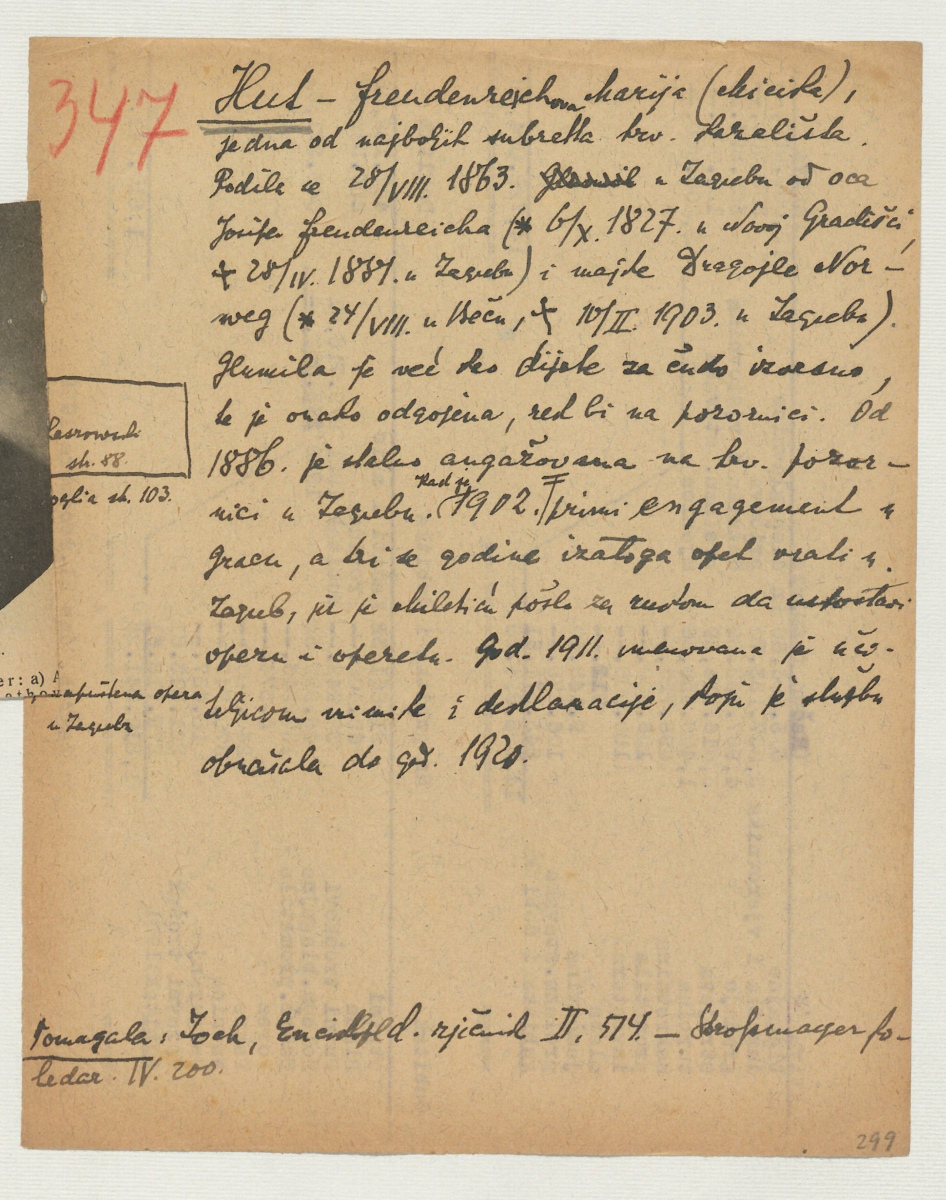 347
Hut – Freudenreichova Marija (Micika),
jedna od najboljih subretta hrv. kazališta.
Rodila se 28/VIII. 1863. u Zagrebu od oca
Josipa Freudenreicha (* 6/X. 1827. u Novoj Gradišci,
† 28/IV. 1881. u Zagrebu) i majke Dragojle Nor-
weg (* 24/VIII. u Beču, † 10/II. 1903. u Zagrebu).
Glumila je već kao dijete za čudo izvrsno,
te je onako odgojena, rekbi na pozornici. Od
1886. je stalno angažovana na hrv. pozor-
nici u Zagrebu. Kad je 1902. primi engagement u
Gracu, a tri se godine izatoga opet vrati u
Zagreb, jer je Miletić pošlo za rukom da uspostavi
operu i operetu. God. 1911. imenovana je uči-
teljicom mimike i deklamacije, koju je službu
obnašala do god. 1920.
str. 88.
str. 103.
er: a) A
napuštena opera
u Zagrebu
Pomagala: Zoch, Encikljd. rječnik II, 574. – Strossmayer ko-
ledar. IV. 200.
299